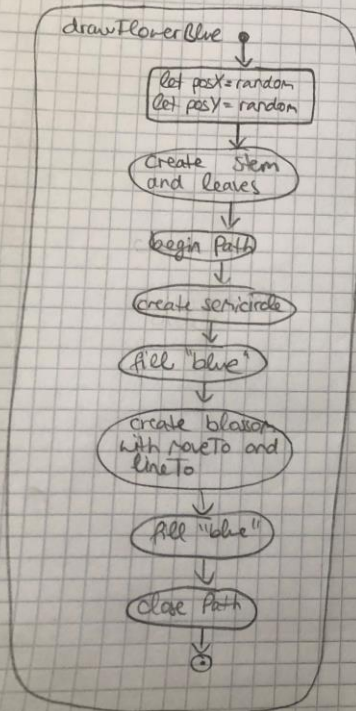 drawFlowerBlue
let posX = random
let posY = random
create stem
and leaves
begin Path
create semicircle
fill "blue"
create blossom
with moveTo and
lineTo
fill "blue"
close Path